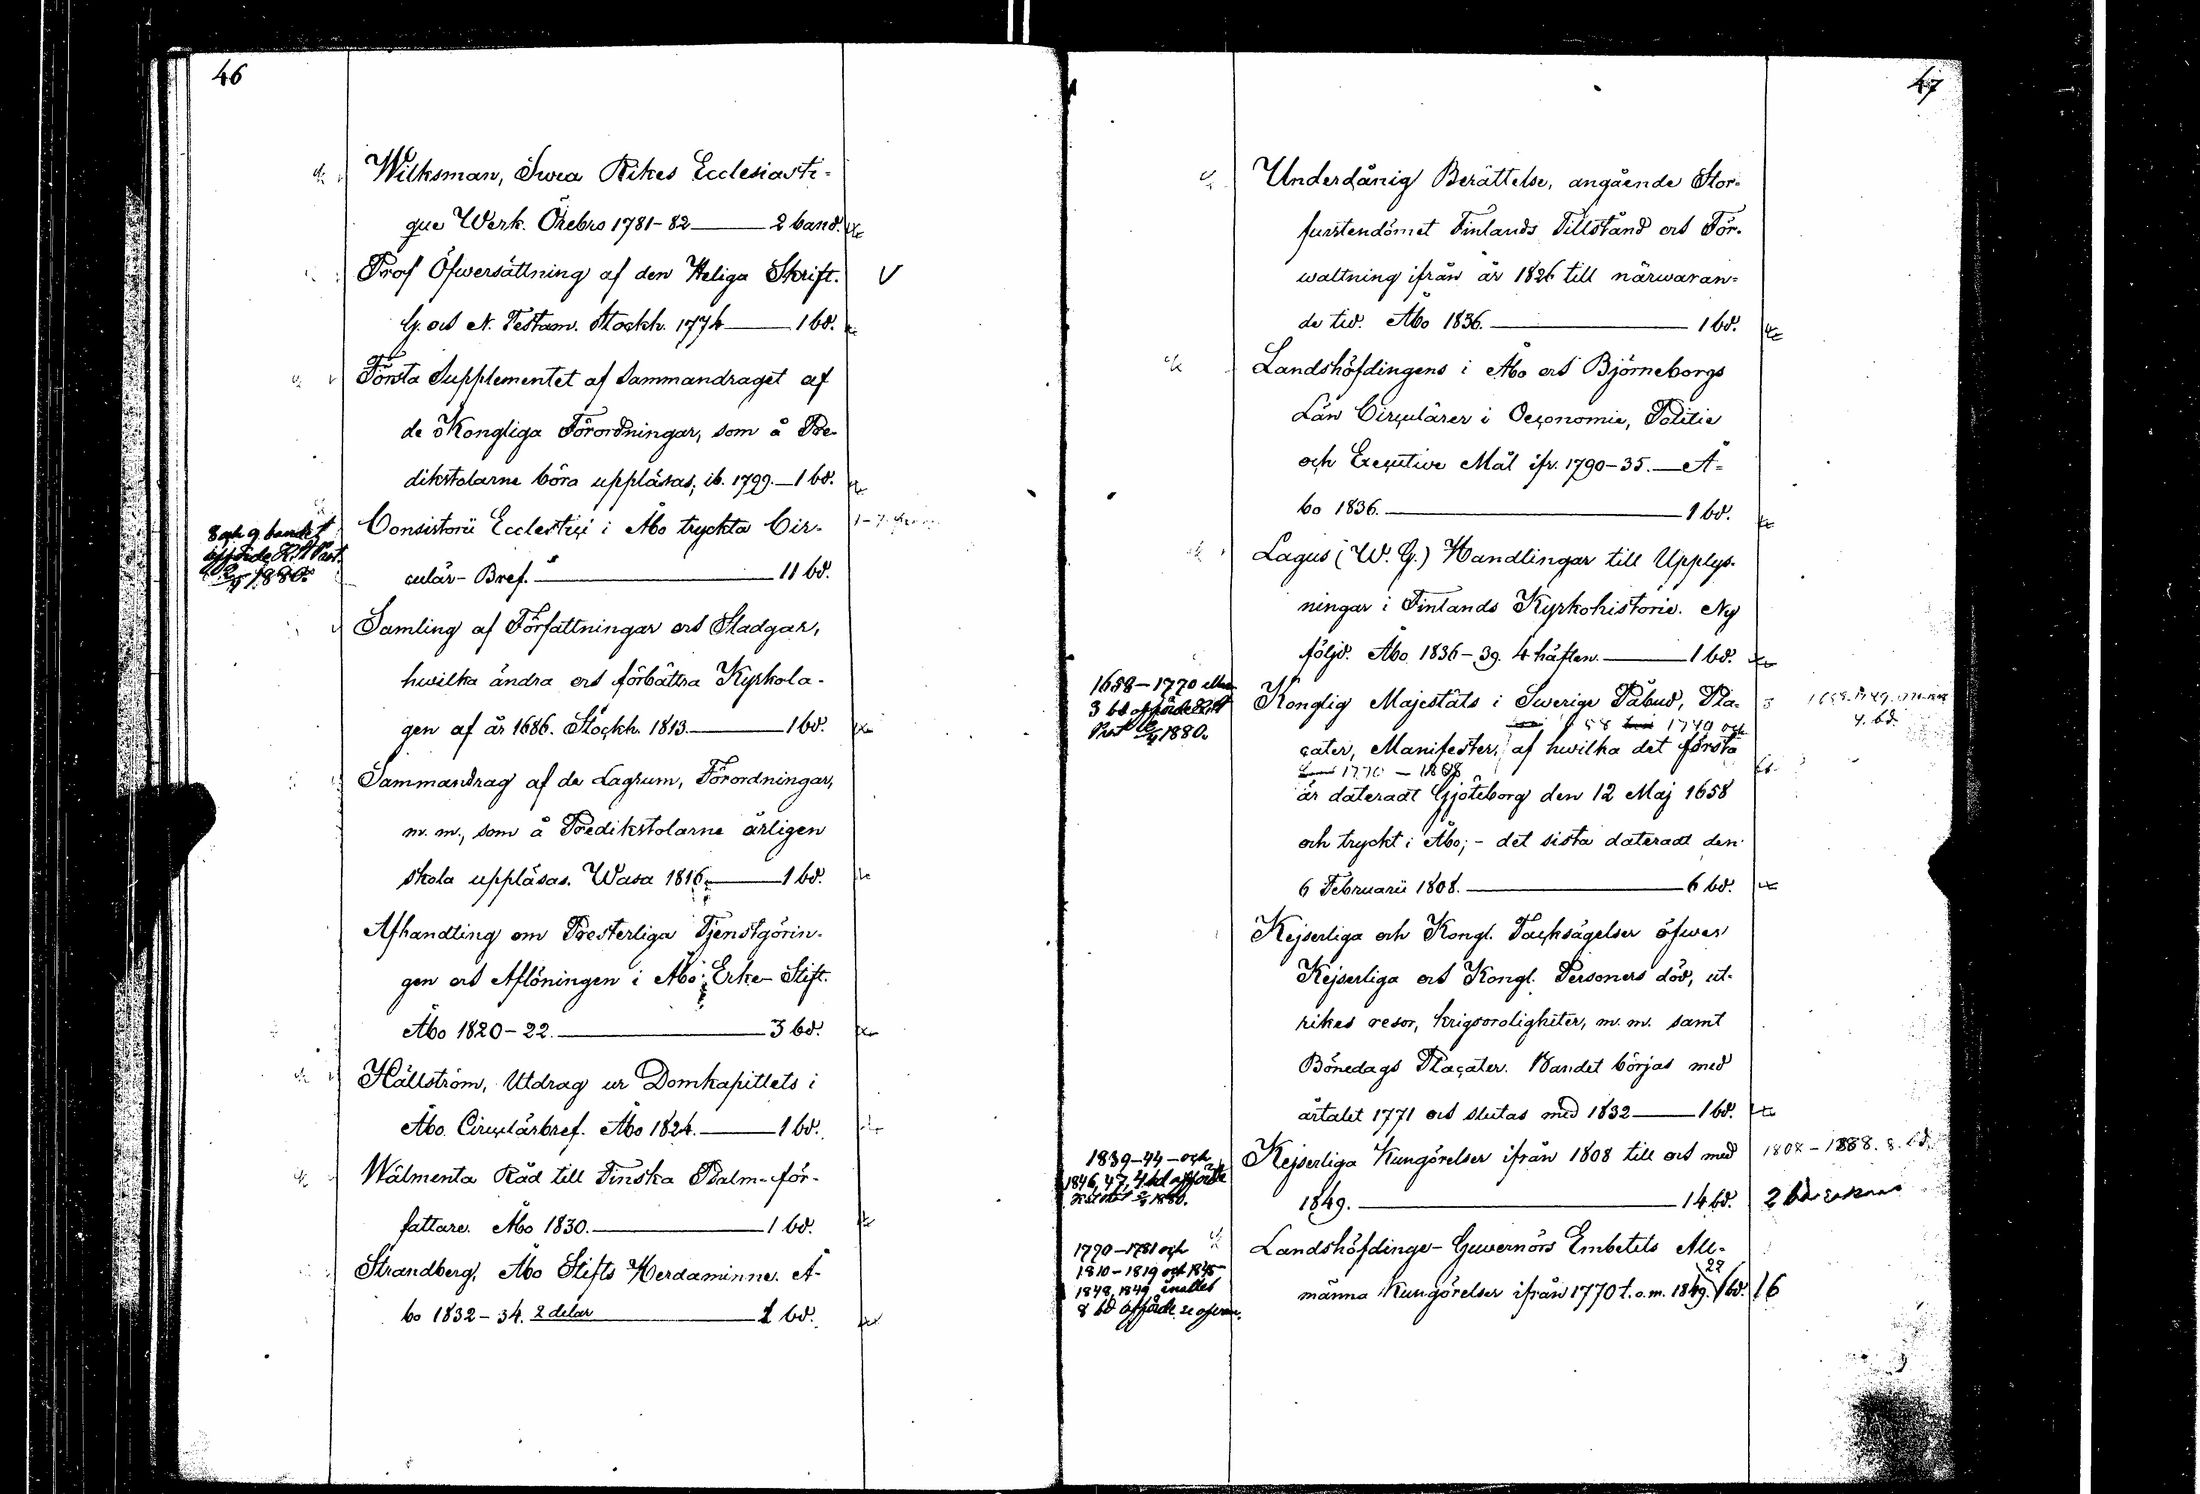 46
Wilksman, Swea Rikes Ecclesiasti-
que Werk. Örebro 1781-82 — 2 band.
Prof Öfwersättning af den Heliga Skrift.
G. och N. Testam. Stockh. 1774 — 1 bd.
V
Första Supplementet af Sammandraget af
de Kongliga Förordningar, som å Pre-
dikstolarne böra uppläsas; ib. 1799. — 1 bd.
8 och 9 bandet
afförde K. R. Prot.
1880.
Consistorii Ecclestici i Åbo tryckta Cir-
culär-Bref. — 11 bd.
Samling af Författningar och Stadgar,
hwilka ändra och förbättra Kyrkola-
gen af år 1686. Stockh. 1813. — 1 bd.
Sammandrag af de Lagrum, Förordningar,
m. m., som å Predikstolarne årligen
skola uppläsas. Wasa 1816. — 1 bd.
Afhandling om Presterliga Tjenstgörin-
gen och Aflöningen i Åbo Erke-Stift.
Åbo 1820-22. — 3 bd.
Hällström, Utdrag ur Domkapitlets i
Åbo Circulärbref. Åbo 1824. — 1 bd.
Wälmenta Råd till Finska Psalm-för-
fattare. Åbo 1830. — 1 bd.
Strandberg, Åbo Stifts Herdaminne. Å-
bo 1832-34. 2 delar — 1 bd.
47
Underdånig Berättelse, angående Stor-
furstendömet Finlands Tillstånd och För-
waltning ifrån år 1826 till närwaran-
de tid. Åbo 1836. — 1 bd.
Landshöfdingens i Åbo och Björneborgs
Län Circulärer i Oeconomie, Politie
och Executive Mål ifr. 1790-35. — Å-
bo 1836. — 1 bd.
Lagus (W. G.) Handlingar till Upplys-
ningar i Finlands Kyrkohistorie. Ny
följd. Åbo 1836-39. 4 häften. — 1 bd.
1658-1770
3 bd afförde
Prot 1880.
Konglig Majestäts i Swerige Påbud, Pla-
4. bd.
1740 och
cater, Manifester, af hwilka det första
1770 - 1808
är dateradt Gjöteborg den 12 Maj 1658
och tryckt i Åbo; - det sista dateradt den
6 Februarii 1808. — 6 bd.
Kejserliga och Kongl. Tacksägelser öfwer
Kejserliga och Kongl. Personers död, ut-
rikes resor, krigsoroligheter, m. m. samt
Bönedags Placater. Bandet börjas med
årtalet 1771 och slutas med 1832 — 1 bd.
1839-44 - och
1846, 47, 4 bd afförde
1880.
Kejserliga Kungörelser ifrån 1808 till och med
1808-1888. 8. bd.
1849. — 14 bd.
2 bd
1770-1781 och
1810-1819 och 1845
1848, 1849 inalles
8 bd afförde se ofvan.
Landshöfdinge-Guvernörs Embetets All-
22
männa Kungörelser ifrån 1770 t. o. m. 1849. bd. 16